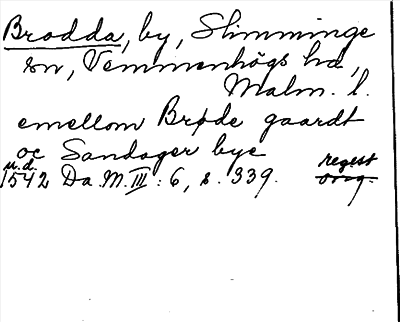 Brodda, by, Slimminge
sn, Vemmenhögs hd,
Malm. l.
emellom Brøde gaardt
oc Sandager bye
u.d. regest
1542 Da.M. III: 6, s. 339. orig.